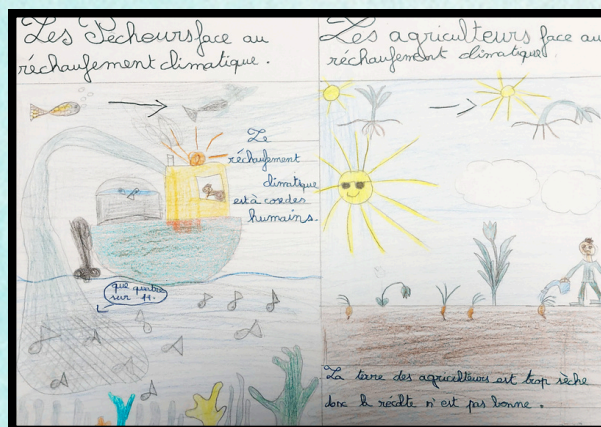 Les Pêcheurs face au
réchaufement climatique.
Le
réchaufement
climatique
est à cose des
humains.
que quatre
sur 11.
Les agriculteurs face au
réchaufement climatique.
La terre des agriculteurs est trop sèche
donc la récolte n'est pas bonne.